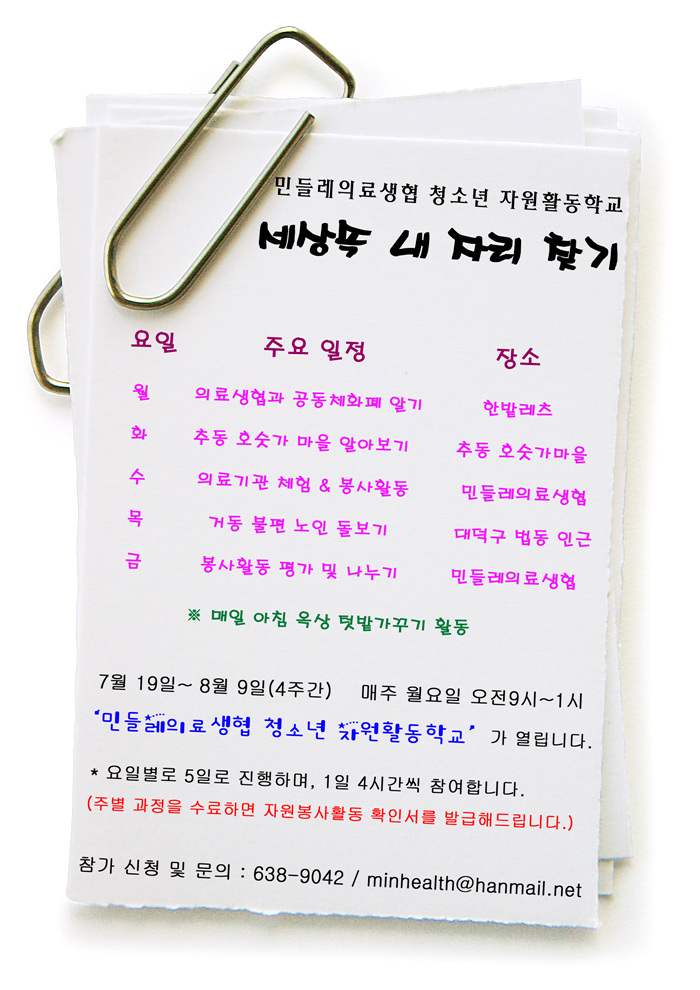 민들레의료생협 청소년 자원활동학교
세상속 내 자리 찾기
요일 주요 일정 장소
월 의료생협과 공동체화폐 알기 한밭레츠
화 추동 호숫가 마을 알아보기 추동 호숫가마을
수 의료기관 체험 & 봉사활동 민들레의료생협
목 거동 불편 노인 돌보기 대덕구 법동 인근
금 봉사활동 평가 및 나누기 민들레의료생협
※ 매일 아침 옥상 텃밭가꾸기 활동
7월 19일~ 8월 9일(4주간) 매주 월요일 오전9시~1시
'민들레의료생협 청소년 자원활동학교' 가 열립니다.
* 요일별로 5일로 진행하며, 1일 4시간씩 참여합니다.
(주별 과정을 수료하면 자원봉사활동 확인서를 발급해드립니다.)
참가 신청 및 문의 : 638-9042 / minhealth@hanmail.net